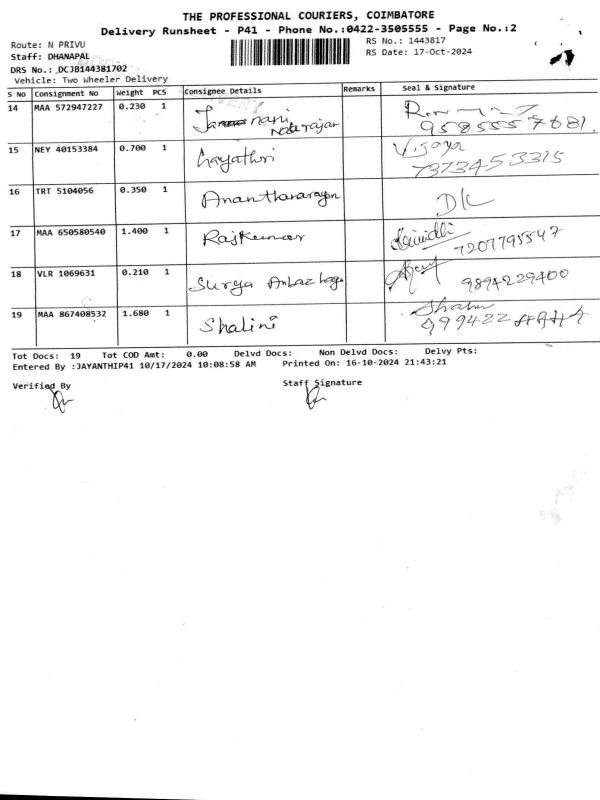 THE PROFESSIONAL COURIERS, COIMBATORE
Delivery Runsheet - P41 - Phone No.:0422-3505555 - Page No.:2
Route: N PRIVU
RS No.: 1443817
Staff: DHANAPAL
RS Date: 17-Oct-2024
DRS No.: DCJB144381702
Vehicle: Two Wheeler Delivery
S No Consignment No Weight PCS Consignee Details Remarks Seal & Signature
14 MAA 572947227 0.230 1 9585557681
15 NEY 40153384 0.700 1 Gayathri Vijaya 7373453315
16 TRT 5104056 0.350 1 Anantharayan
17 MAA 650580540 1.400 1 Rajkumar 7207795547
18 VLR 1069631 0.210 1 Surya Anbazhag 9894229400
19 MAA 867408532 1.680 1 Shalini 999422
Tot Docs: 19 Tot COD Amt: 0.00 Delvd Docs: Non Delvd Docs: Delvy Pts:
Entered By :JAYANTHIP41 10/17/2024 10:08:58 AM Printed On: 16-10-2024 21:43:21
Verified By Staff Signature